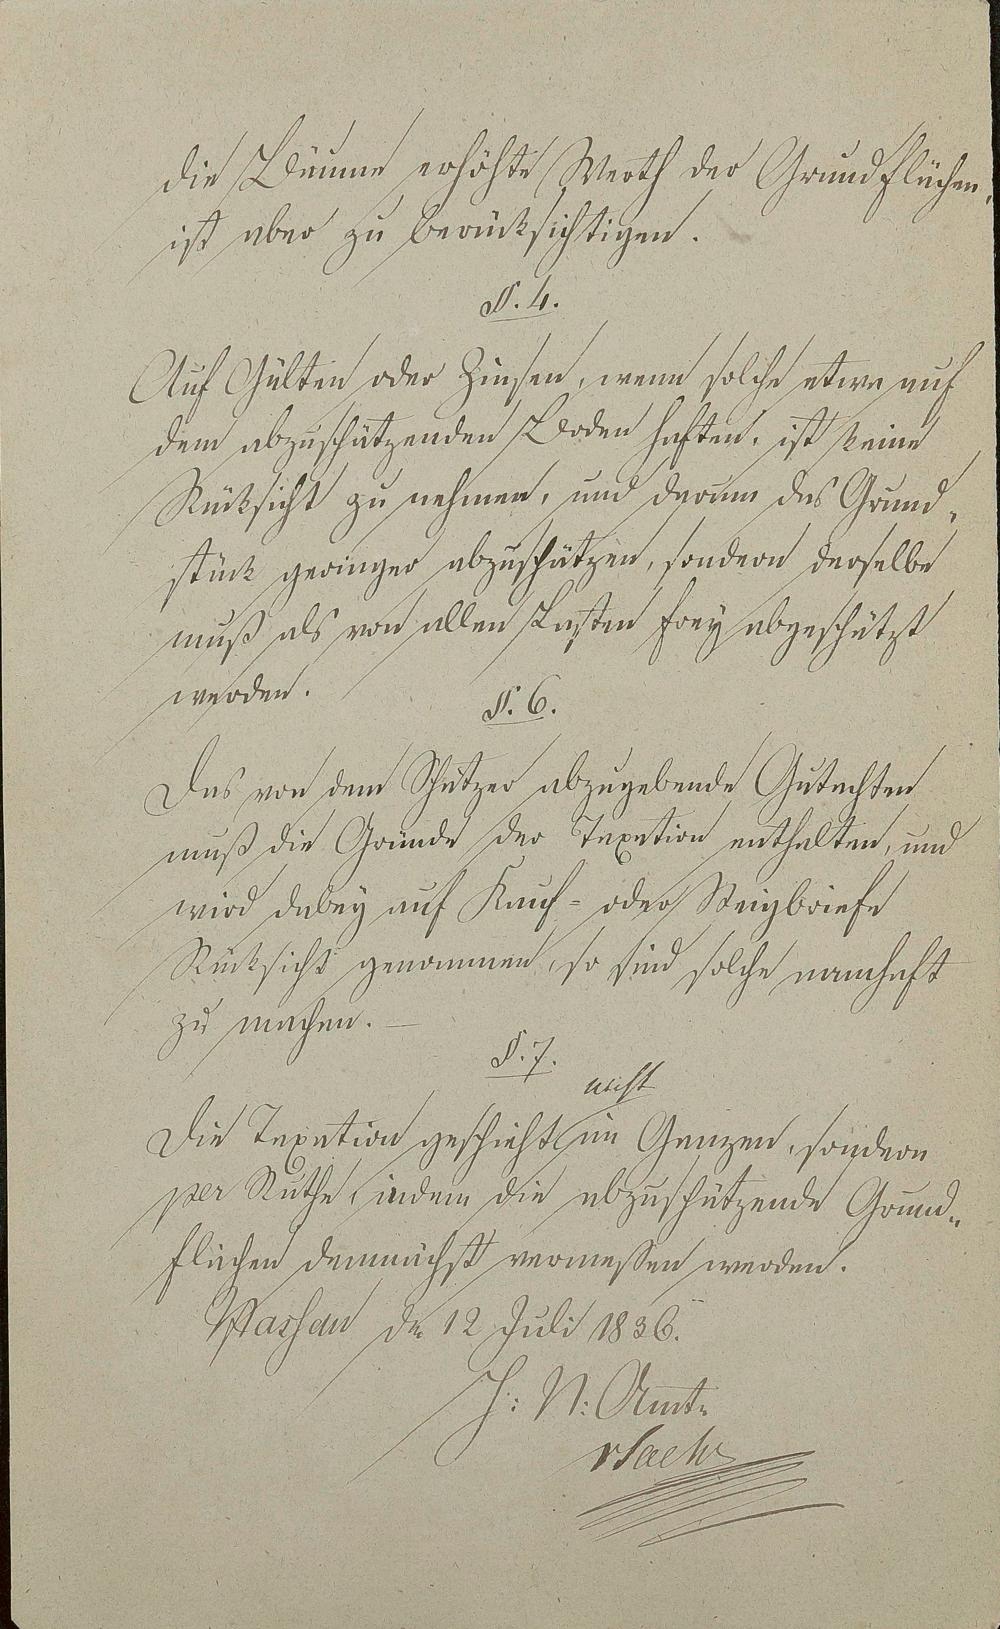 die Bäume erhöhte Werth der Grundflächen,
ist aber zu berücksichtigen.
§. 4.
Auf Gülten oder Zinsen, wenn solche etwa auf
dem abzuschätzenden Boden haften, ist keine
Rücksicht zu nehmen, und darum das Grund„
stück geringer abzuschätzen, sondern derselbe
muß als von allen Lasten frey abgeschätzt
werden.
§. 6.
Das von dem Schätzer abzugebende Gutachten
muß die Gründe der Taxation enthalten, und
wird dabey auf Kauf= oder Steigbriefe
Rücksicht genommen, so sind solche namhaft
zu machen. —
§. 7.
nicht
Die Taxation geschieht im Ganzen, sondern
per Ruthe, indem die abzuschätzende Grund„
flächen demnächst vermessen werden.
den 12 Juli 1836.
H: N: Amt.